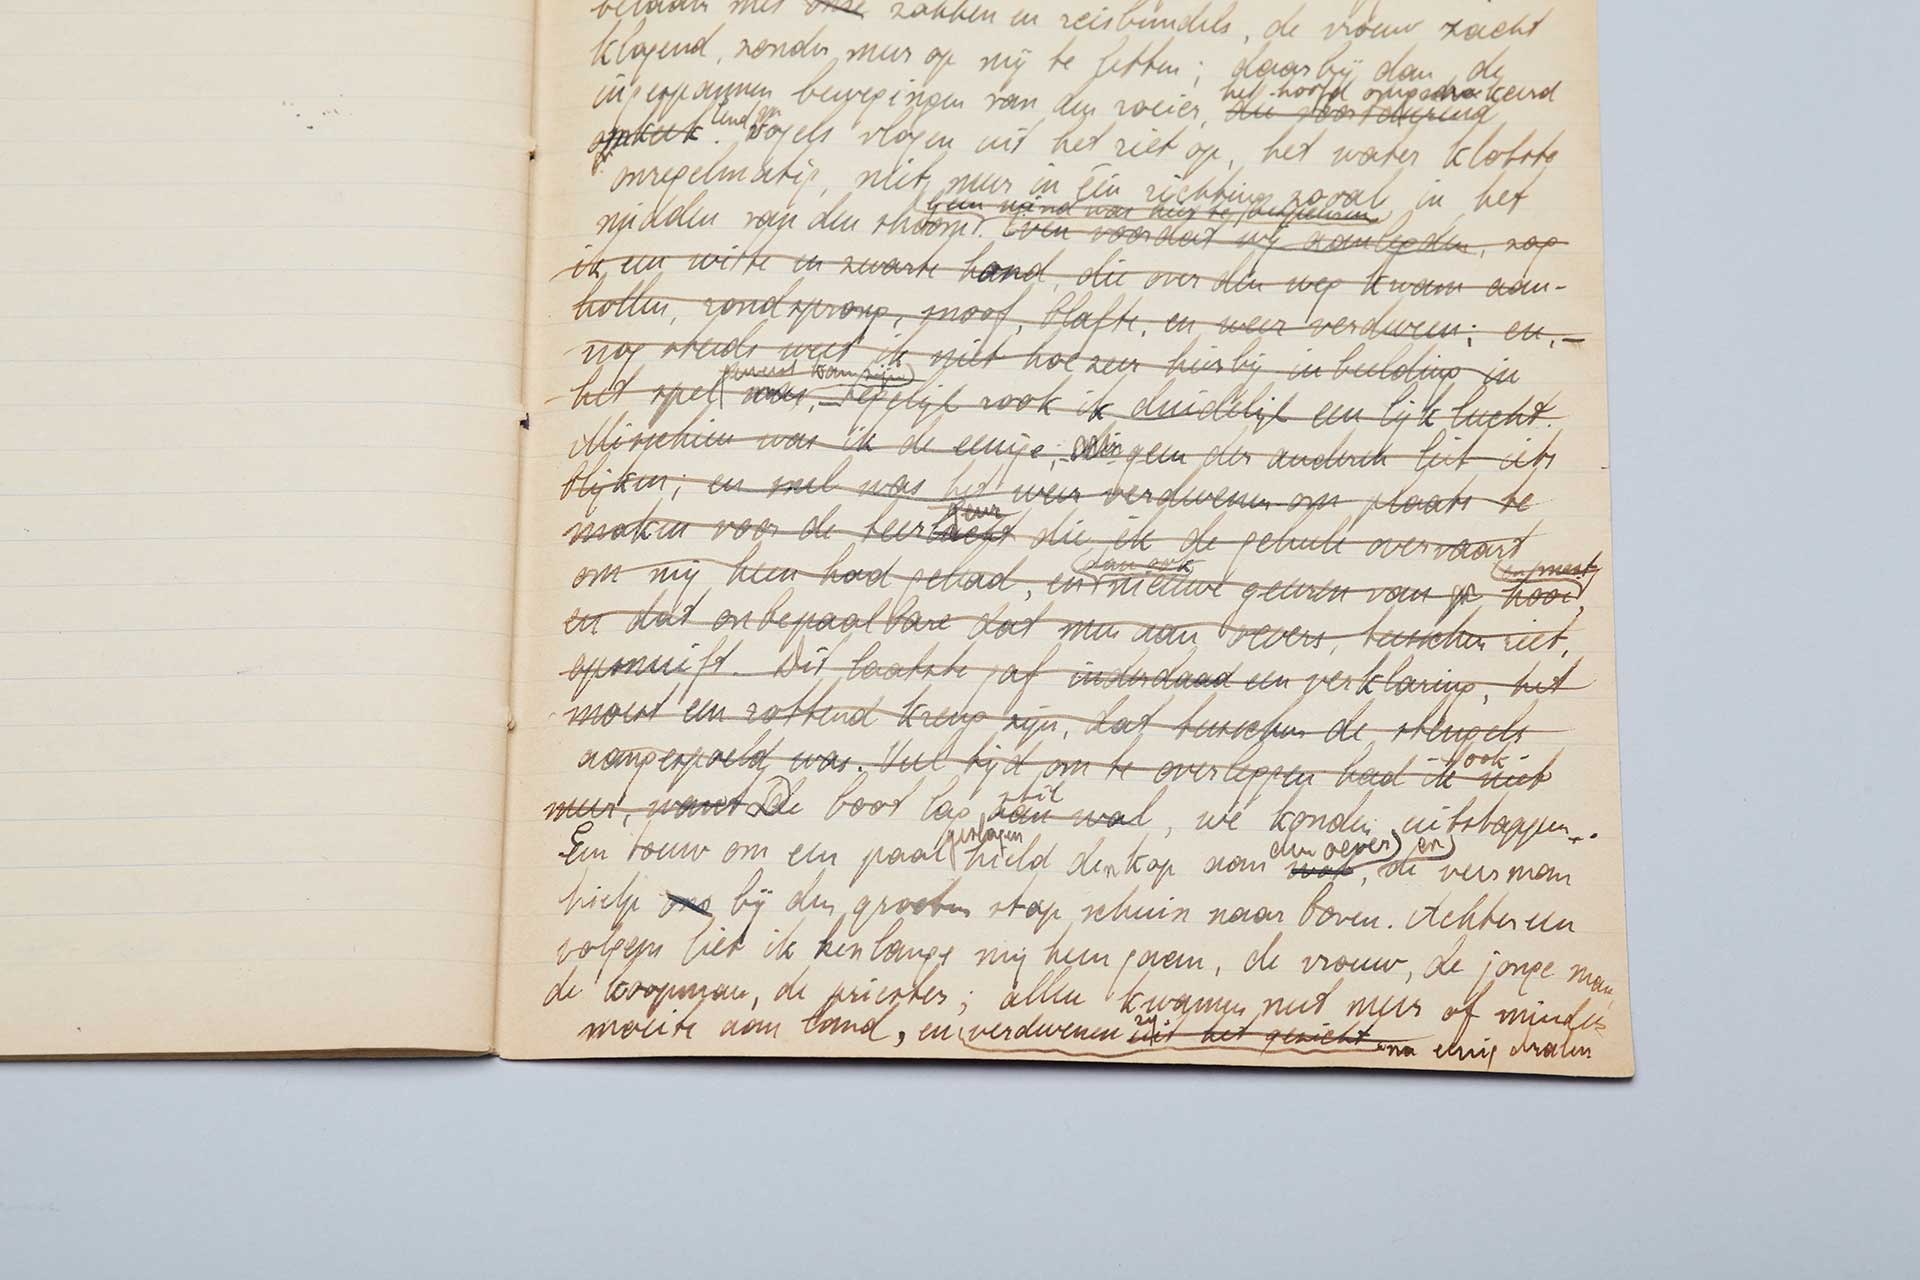 beladen met onze zakken en reisbundels, de vrouw zacht
klagend, zonder meer op mij te letten; daarbij dan de
ingespannen bewegingen van den roeier, het hoofd omgekeerd die voortdurend
omkeek. Eend vogels vlogen uit het riet op, het water klotste
onregelmatig, niet meer in één richting zooals in het
midden van den stroom. geen wind was hier te bespeuren Even voordat wij aanlegden, zag
ik een witte en zwarte hond, die over den weg kwam aan-
hollen, rondsprong, snoof, blafte, en weer verdween; en, –
nog steeds weet ik niet hoezeer hierbij inbeelding in
het spel geweest kan zijn was, – tegelijk rook ik duidelijk een lijklucht.
Misschien was ik de eenige; geen der anderen liet iets
blijken; en snel was het weer verdwenen om plaats te
maken voor de teerlucht geur die ik de geheele overvaart
om mij heen had gehad, en dan ook nieuwe geuren van hooi en mest,
en dat onbepaalbare dat men aan oevers, tusschen riet,
opsnuift. Dit laatste gaf inderdaad een verklaring, het
moest een rottend kreng zijn, dat tusschen de stengels
aangespoeld was. Veel tijd om te overleggen had ik ook niet
meer, want De boot lag stil aan wal, we konden uitstappen..
Een touw om een paal geslagen hield den kop aan den oever wal, en de veerman
hielp ons bij den grooten stap schuin naar boven. Achtereen
volgens liet ik hen langs mij heen gaan, de vrouw, de jonge man,
de koopman, de priester; allen kwamen met meer of minder
moeite aan land, en verdwenen uit het gezicht na eenig dralen